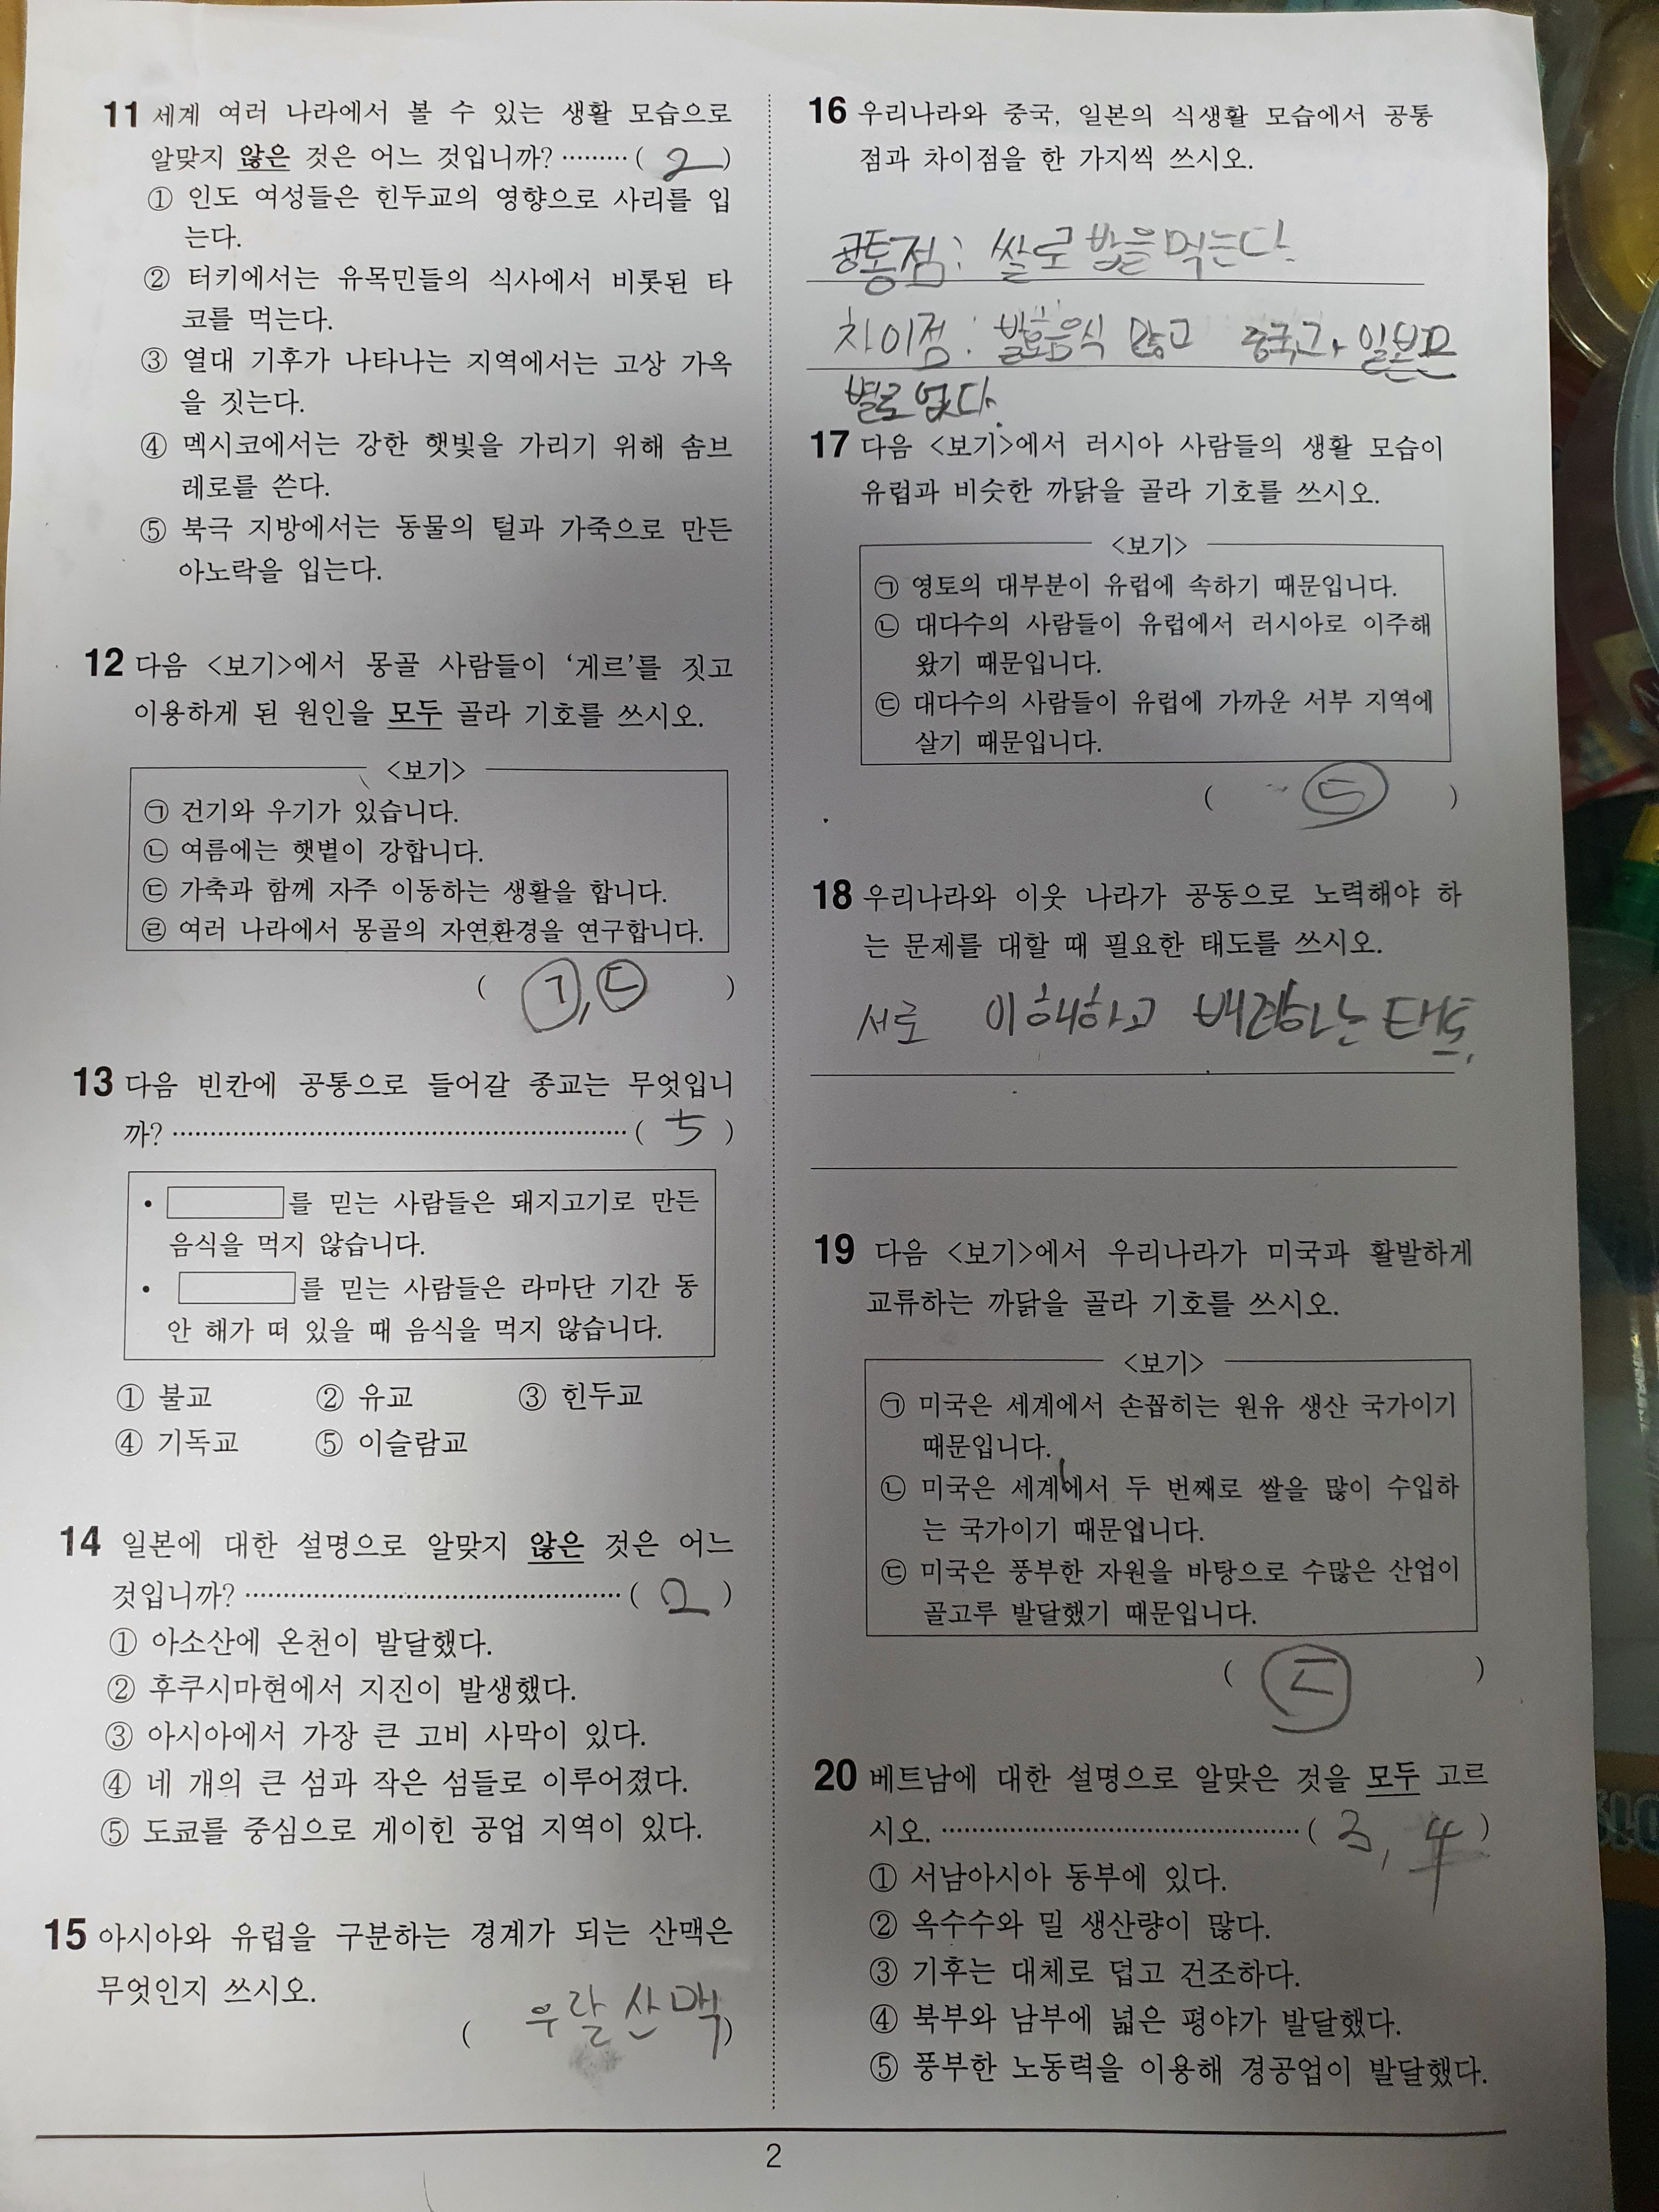 11 세계 여러 나라에서 볼 수 있는 생활 모습으로
알맞지 않은 것은 어느 것입니까? ········· ( 2 )
① 인도 여성들은 힌두교의 영향으로 사리를 입
는다.
② 터키에서는 유목민들의 식사에서 비롯된 타
코를 먹는다.
③ 열대 기후가 나타나는 지역에서는 고상 가옥
을 짓는다.
④ 멕시코에서는 강한 햇빛을 가리기 위해 솜브
레로를 쓴다.
⑤ 북극 지방에서는 동물의 털과 가죽으로 만든
아노락을 입는다.
12 다음 <보기>에서 몽골 사람들이 ‘게르’를 짓고
이용하게 된 원인을 모두 골라 기호를 쓰시오.
<보기>
㉠ 건기와 우기가 있습니다.
㉡ 여름에는 햇볕이 강합니다.
㉢ 가축과 함께 자주 이동하는 생활을 합니다.
㉣ 여러 나라에서 몽골의 자연환경을 연구합니다.
( ㉠, ㉢ )
13 다음 빈칸에 공통으로 들어갈 종교는 무엇입니
까? ········· ( 5 )
• 를 믿는 사람들은 돼지고기로 만든
음식을 먹지 않습니다.
• 를 믿는 사람들은 라마단 기간 동
안 해가 떠 있을 때 음식을 먹지 않습니다.
① 불교 ② 유교 ③ 힌두교
④ 기독교 ⑤ 이슬람교
14 일본에 대한 설명으로 알맞지 않은 것은 어느
것입니까? ········· ( 2 )
① 아소산에 온천이 발달했다.
② 후쿠시마현에서 지진이 발생했다.
③ 아시아에서 가장 큰 고비 사막이 있다.
④ 네 개의 큰 섬과 작은 섬들로 이루어졌다.
⑤ 도쿄를 중심으로 게이힌 공업 지역이 있다.
15 아시아와 유럽을 구분하는 경계가 되는 산맥은
무엇인지 쓰시오.
( 우랄산맥 )
16 우리나라와 중국, 일본의 식생활 모습에서 공통
점과 차이점을 한 가지씩 쓰시오.
공통점: 쌀로 밥을 먹는다.
차이점: 발효음식 많고 중국과 일본은
별로 없다.
17 다음 <보기>에서 러시아 사람들의 생활 모습이
유럽과 비슷한 까닭을 골라 기호를 쓰시오.
<보기>
㉠ 영토의 대부분이 유럽에 속하기 때문입니다.
㉡ 대다수의 사람들이 유럽에서 러시아로 이주해
왔기 때문입니다.
㉢ 대다수의 사람들이 유럽에 가까운 서부 지역에
살기 때문입니다.
( ㉢ )
18 우리나라와 이웃 나라가 공동으로 노력해야 하
는 문제를 대할 때 필요한 태도를 쓰시오.
서로 이해하고 배려하는 태도.
19 다음 <보기>에서 우리나라가 미국과 활발하게
교류하는 까닭을 골라 기호를 쓰시오.
<보기>
㉠ 미국은 세계에서 손꼽히는 원유 생산 국가이기
때문입니다.
㉡ 미국은 세계에서 두 번째로 쌀을 많이 수입하
는 국가이기 때문입니다.
㉢ 미국은 풍부한 자원을 바탕으로 수많은 산업이
골고루 발달했기 때문입니다.
( ㉢ )
20 베트남에 대한 설명으로 알맞은 것을 모두 고르
시오. ········· ( 3, 4 )
① 서남아시아 동부에 있다.
② 옥수수와 밀 생산량이 많다.
③ 기후는 대체로 덥고 건조하다.
④ 북부와 남부에 넓은 평야가 발달했다.
⑤ 풍부한 노동력을 이용해 경공업이 발달했다.
2